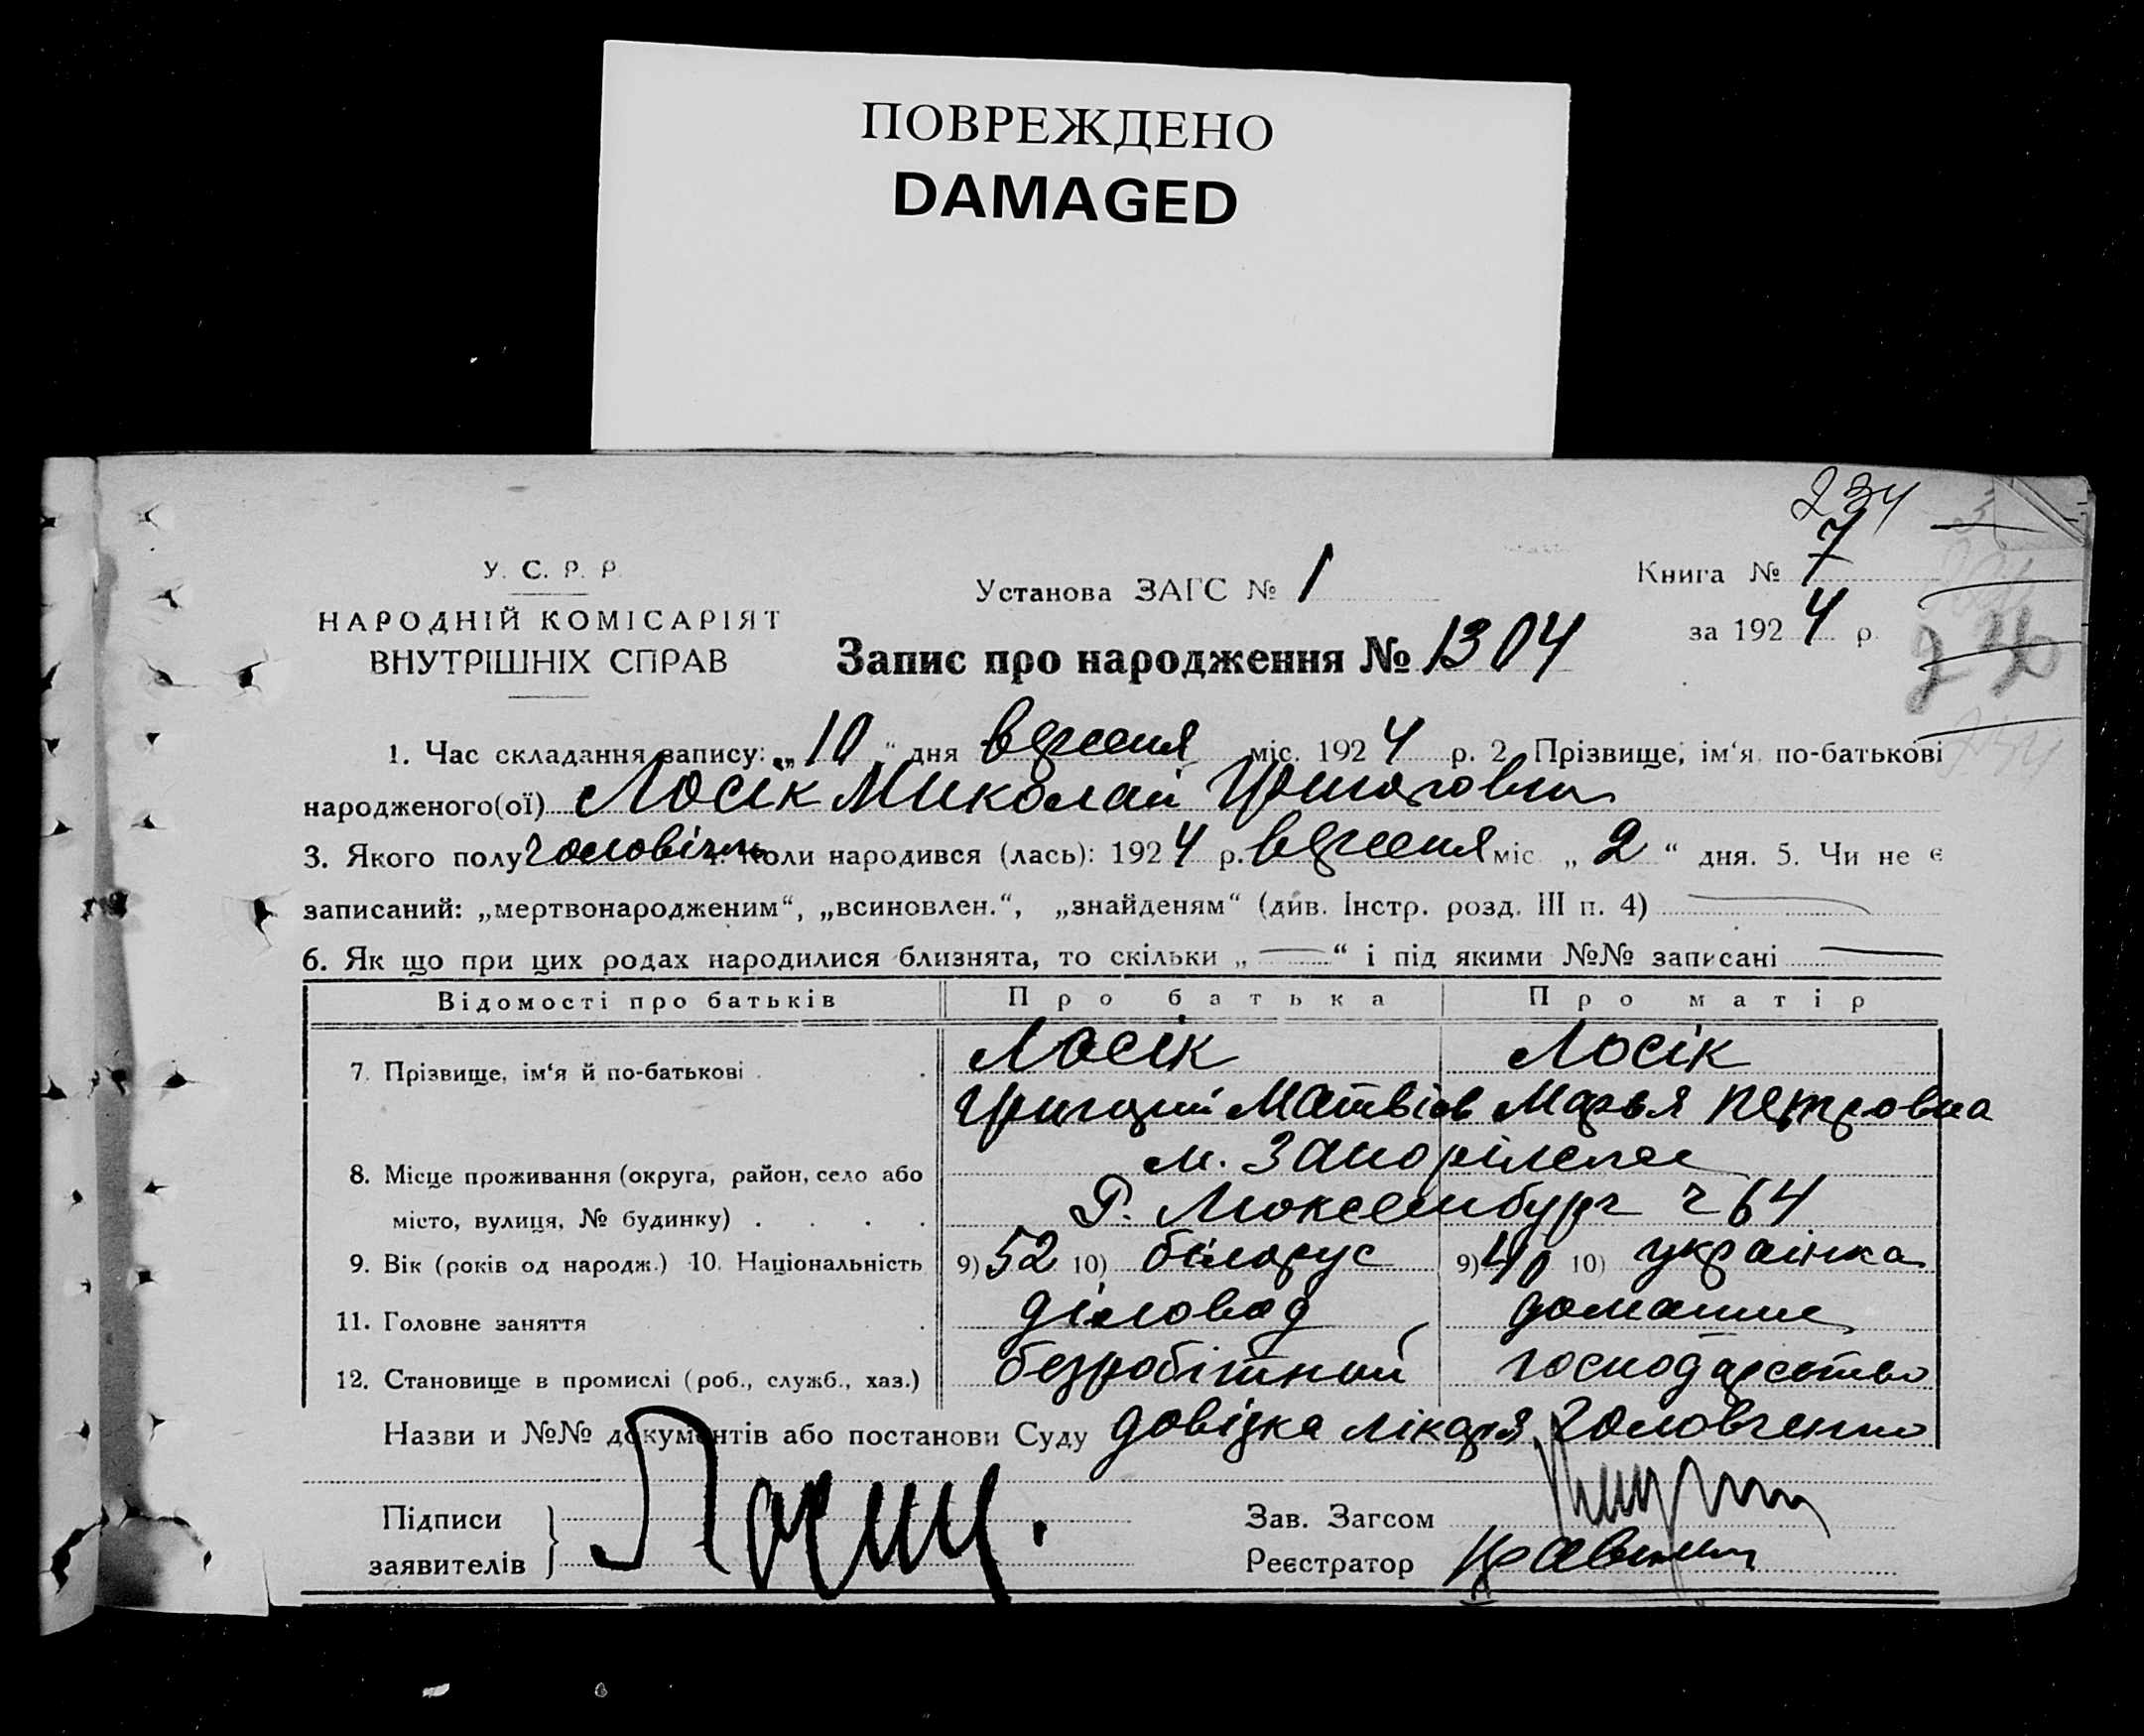 ПОВРЕЖДЕНО
DAMAGED
234
У. С. Р. Р.
НАРОДНІЙ КОМІСАРІЯТ
ВНУТРІШНІХ СПРАВ
Установа ЗАГС № 1
Книга № 7
за 1924 р.
Запис про народження № 1304
1. Час складання запису: „10“ дня вересня міс. 1924 р. 2. Прізвище, ім‘я по-батькові
народженого(ої) Лосік Миколай Григорович
3. Якого полу чоловіч. 4. Коли народився (лась): 1924 р. вересня міс „2“ дня. 5. Чи не є
записаний: „мертвонародженим“, „всиновлен.“, „знайденям“ (див. Інстр. розд. III п. 4)
6. Як що при цих родах народилися близнята, то скільки „—“ і під якими №№ записані —
Відомості про батьків Про батька Про матір
7. Прізвище, ім‘я й по-батькові Лосік Лосік
Григорій Матвіов Марья Петровна
8. Місце проживання (округа, район, село або м. Запоріжжє
місто, вулиця, № будинку) Р. Люксембург ч 64
9. Вік (років од народж.) 10. Національність 9) 52 10) білорус 9) 40 10) українка
11. Головне заняття діловод домашнє
12. Становище в промислі (роб., служб., хаз.) безробітний господарство
Назви и №№ документів або постанови Суду довідка лікаря Головченко
Підписи
заявителів
Зав. Загсом
Реєстратор